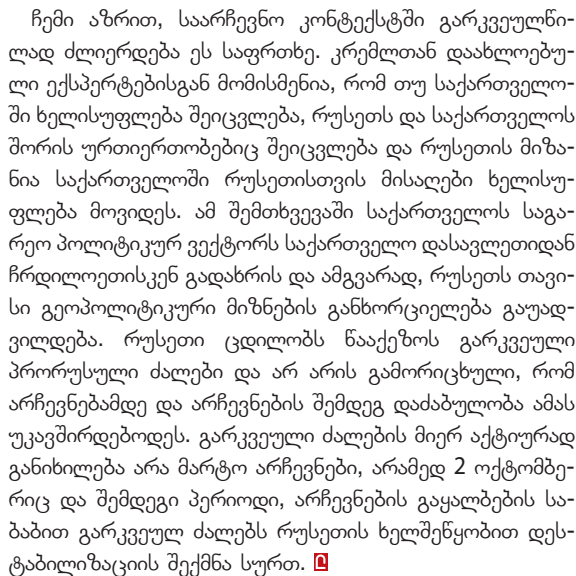 ჩემი აზრით, საარჩევნო კონტექსტში გარკვეულწი-
ლად ძლიერდება ეს საფრთხე. კრემლთან დაახლოებუ-
ლი ექსპერტებისგან მომისმენია, რომ თუ საქართველო-
ში ხელისუფლება შეიცვლება, რუსეთს და საქართველოს
შორის ურთიერთობებიც შეიცვლება და რუსეთის მიზა-
ნია საქართველოში რუსეთისთვის მისაღები ხელისუ-
ფლება მოვიდეს. ამ შემთხვევაში საქართველოს საგა-
რეო პოლიტიკურ ვექტორს საქართველო დასავლეთიდან
ჩრდილოეთისკენ გადახრის და ამგვარად, რუსეთს თავი-
სი გეოპოლიტიკური მიზნების განხორციელება გაუად-
ვილდება. რუსეთი ცდილობს წააქეზოს გარკვეული
პრორუსული ძალები და არ არის გამორიცხული, რომ
არჩევნებამდე და არჩევნების შემდეგ დაძაბულობა ამას
უკავშირდებოდეს. გარკვეული ძალების მიერ აქტიურად
განიხილება არა მარტო არჩევნები, არამედ 2 ოქტომბე-
რიც და შემდეგი პერიოდი, არჩევნების გაყალბების სა-
ბაბით გარკვეულ ძალებს რუსეთის ხელშეწყობით დეს-
ტაბილიზაციის შექმნა სურთ.